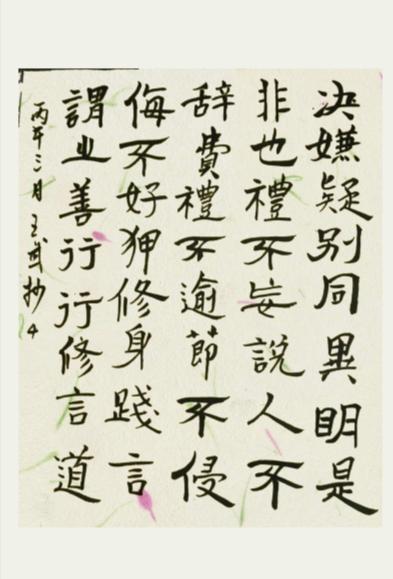 决嫌疑别同異明是
非也禮不妄説人不
辞費禮不逾節不侵
侮不好狎修身踐言
謂之善行行修言道
丙午三月王武抄